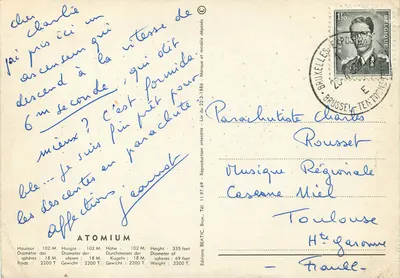 cher Charlie
j'ai pris ici un
ascenseur qui
descend à la vitesse de
6 m seconde, qui dit
mieux? C'est formida-
ble... Je suis fin prêt pour
les descentes en parachute
affections. Jeannot
ATOMIUM
Hauteur : 102 m Hoogte : 102 m Höhe : 102 m Height : 335 feet
Diamètre des Diameter der Durchmesser der Diameter of
sphères : 18 m sferen : 18 m Kugeln : 18 m spheres : 59 feet
Poids : 2200 T. Gewicht : 2200 T. Gewicht : 2200 T. Weight : 2200 T.
Editions BEATIC, Brux. Tél. 11.97.69 - Reproduction interdite - Loi du 22-3-1886 - Marque et modèle déposés
BRUXELLES
BRUSSEL
E
Parachutiste Charles
Rousset
Musique Régionale
Caserne Niel
Toulouse
Hte Garonne
France